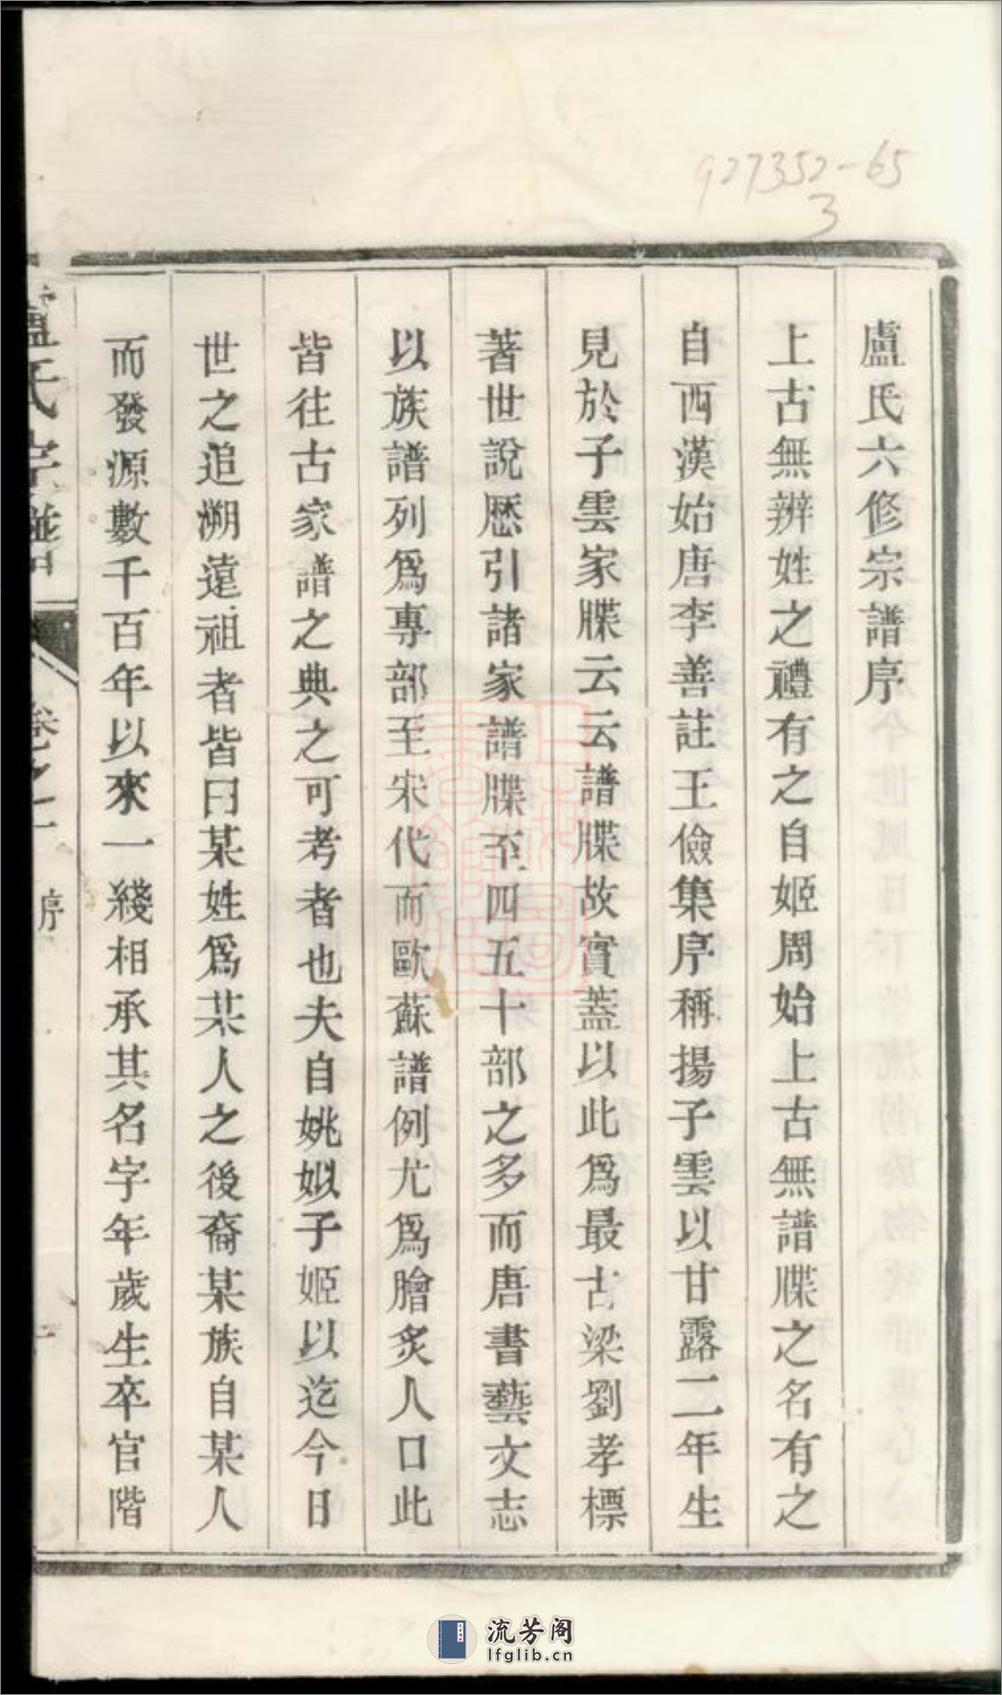 927352-65
3
盧氏六修宗譜序
上古無辨姓之禮有之自姬周始上古無譜牒之名有之
自西漢始唐李善註王儉集序稱揚子雲以甘露二年生
見於子雲家牒云云譜牒故實蓋以此爲最古梁劉孝標
著世說歷引諸家譜牒至四五十部之多而唐書藝文志
以族譜列爲專部至宋代而歐蘇譜例尤爲膾炙人口此
皆往古家譜之典之可考者也夫自姚姒子姬以迄今日
世之追溯遠祖者皆曰某姓爲某人之後裔某族自某人
而發源數千百年以來一綫相承其名字年歲生卒官階
盧氏宗譜 卷之一 序 一
流芳阁
lfglib.cn